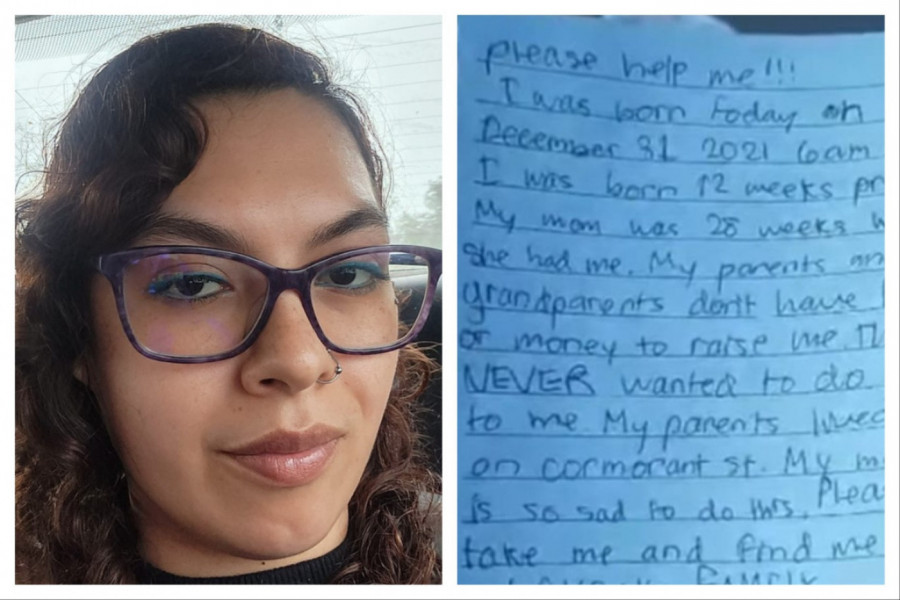 please help me!!!
I was born today on
December 31 2021 6am
I was born 12 weeks pr
My mom was 28 weeks w
she had me. My parents an
grandparents don't have
or money to raise me. T
NEVER wanted to do
to me My parents lived
on cormorant st. My m
is so sad to do this. Plea
take me and find me
family